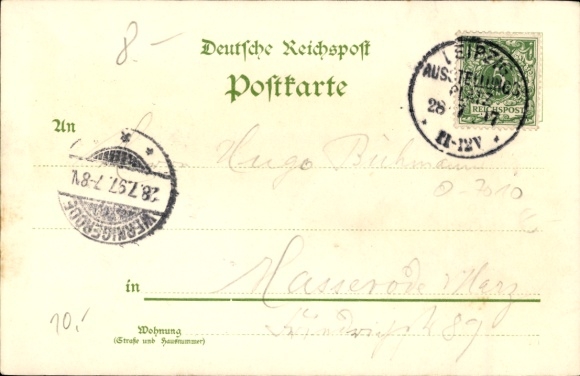 8.-
Deutsche Reichspost
Postkarte
LEIPZIG
AUSSTELLUNGS
PLATZ
28
11-12V
REICHSPOST
An
Herrn Hugo
28.7.97. 7-8N.
WERNIGERODE
in
Hasserode Harz
89
10.-
Wohnung
(Straße und Hausnummer)